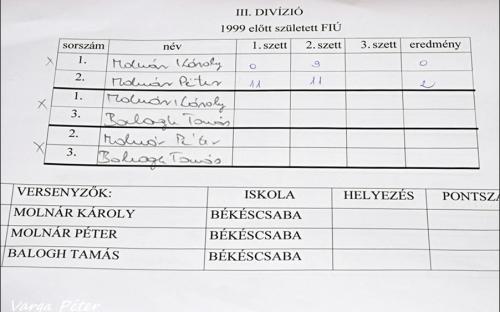 III. DIVÍZIÓ
1999 előtt született FIÚ
sorszám név 1. szett 2. szett 3. szett eredmény
x 1. Molnár Károly 0 9 0
2. Molnár Péter 11 11 2
x 1. Molnár Károly
3. Balogh Tamás
x 2. Molnár Péter
3. Balogh Tamás
VERSENYZŐK: ISKOLA HELYEZÉS PONTSZÁ
MOLNÁR KÁROLY BÉKÉSCSABA
MOLNÁR PÉTER BÉKÉSCSABA
BALOGH TAMÁS BÉKÉSCSABA
Varga Péter